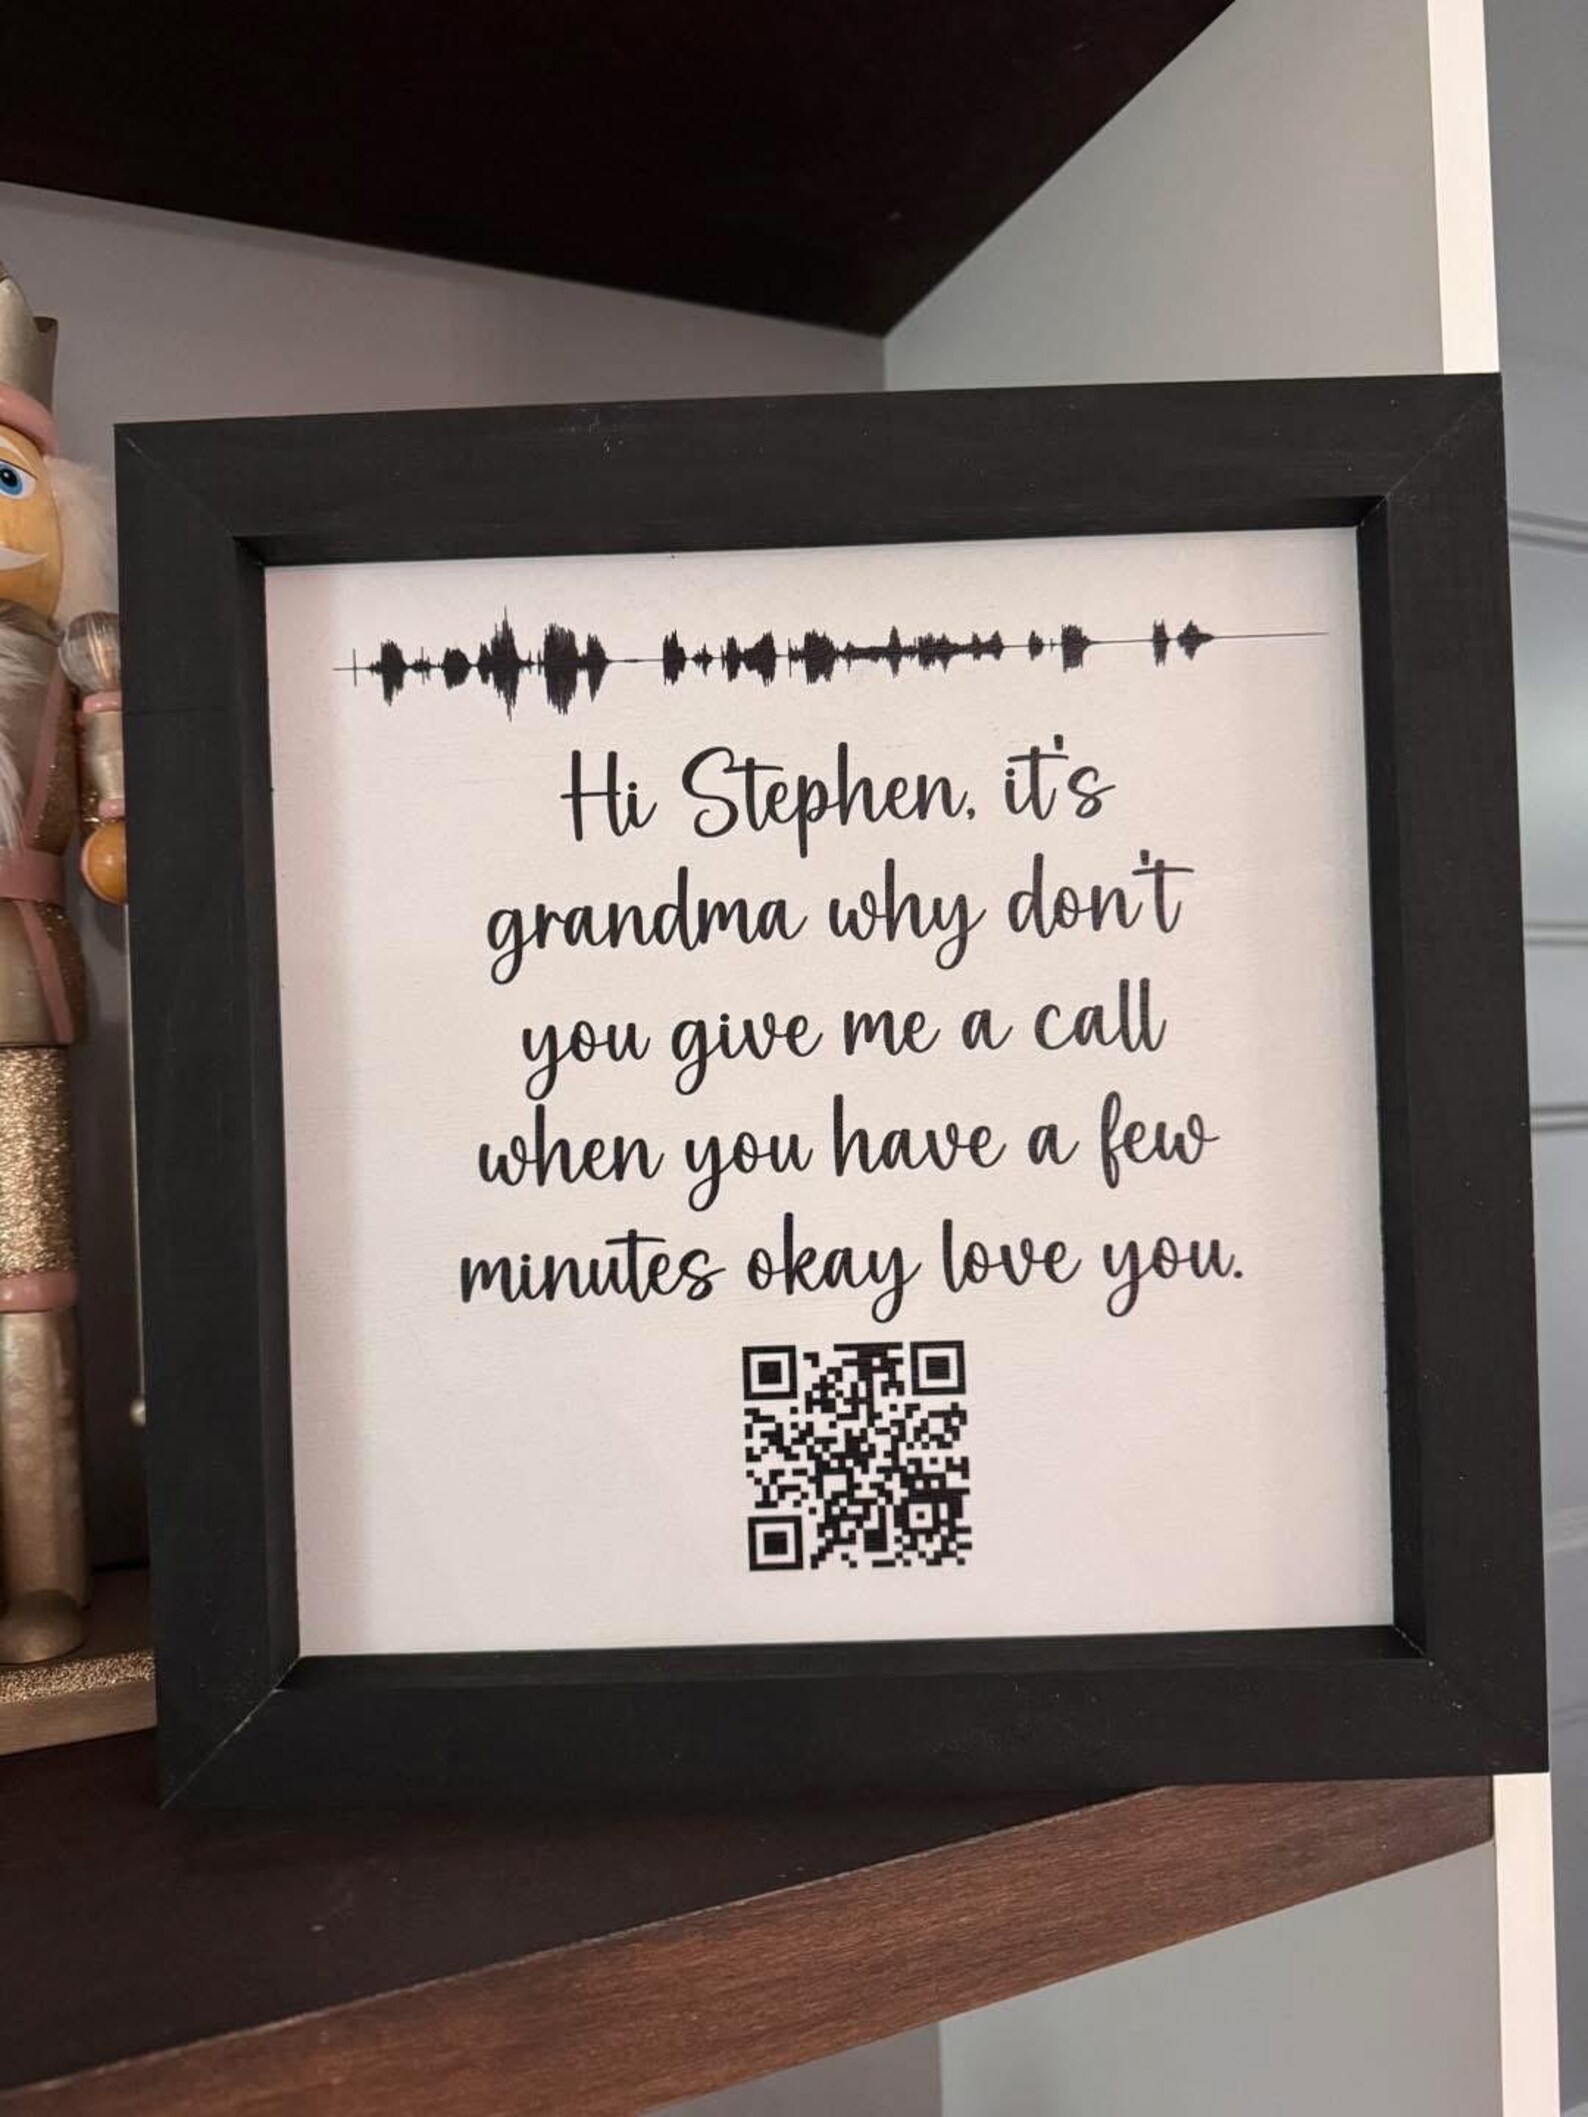 Hi Stephen, it's
grandma why don't
you give me a call
when you have a few
minutes okay love you.